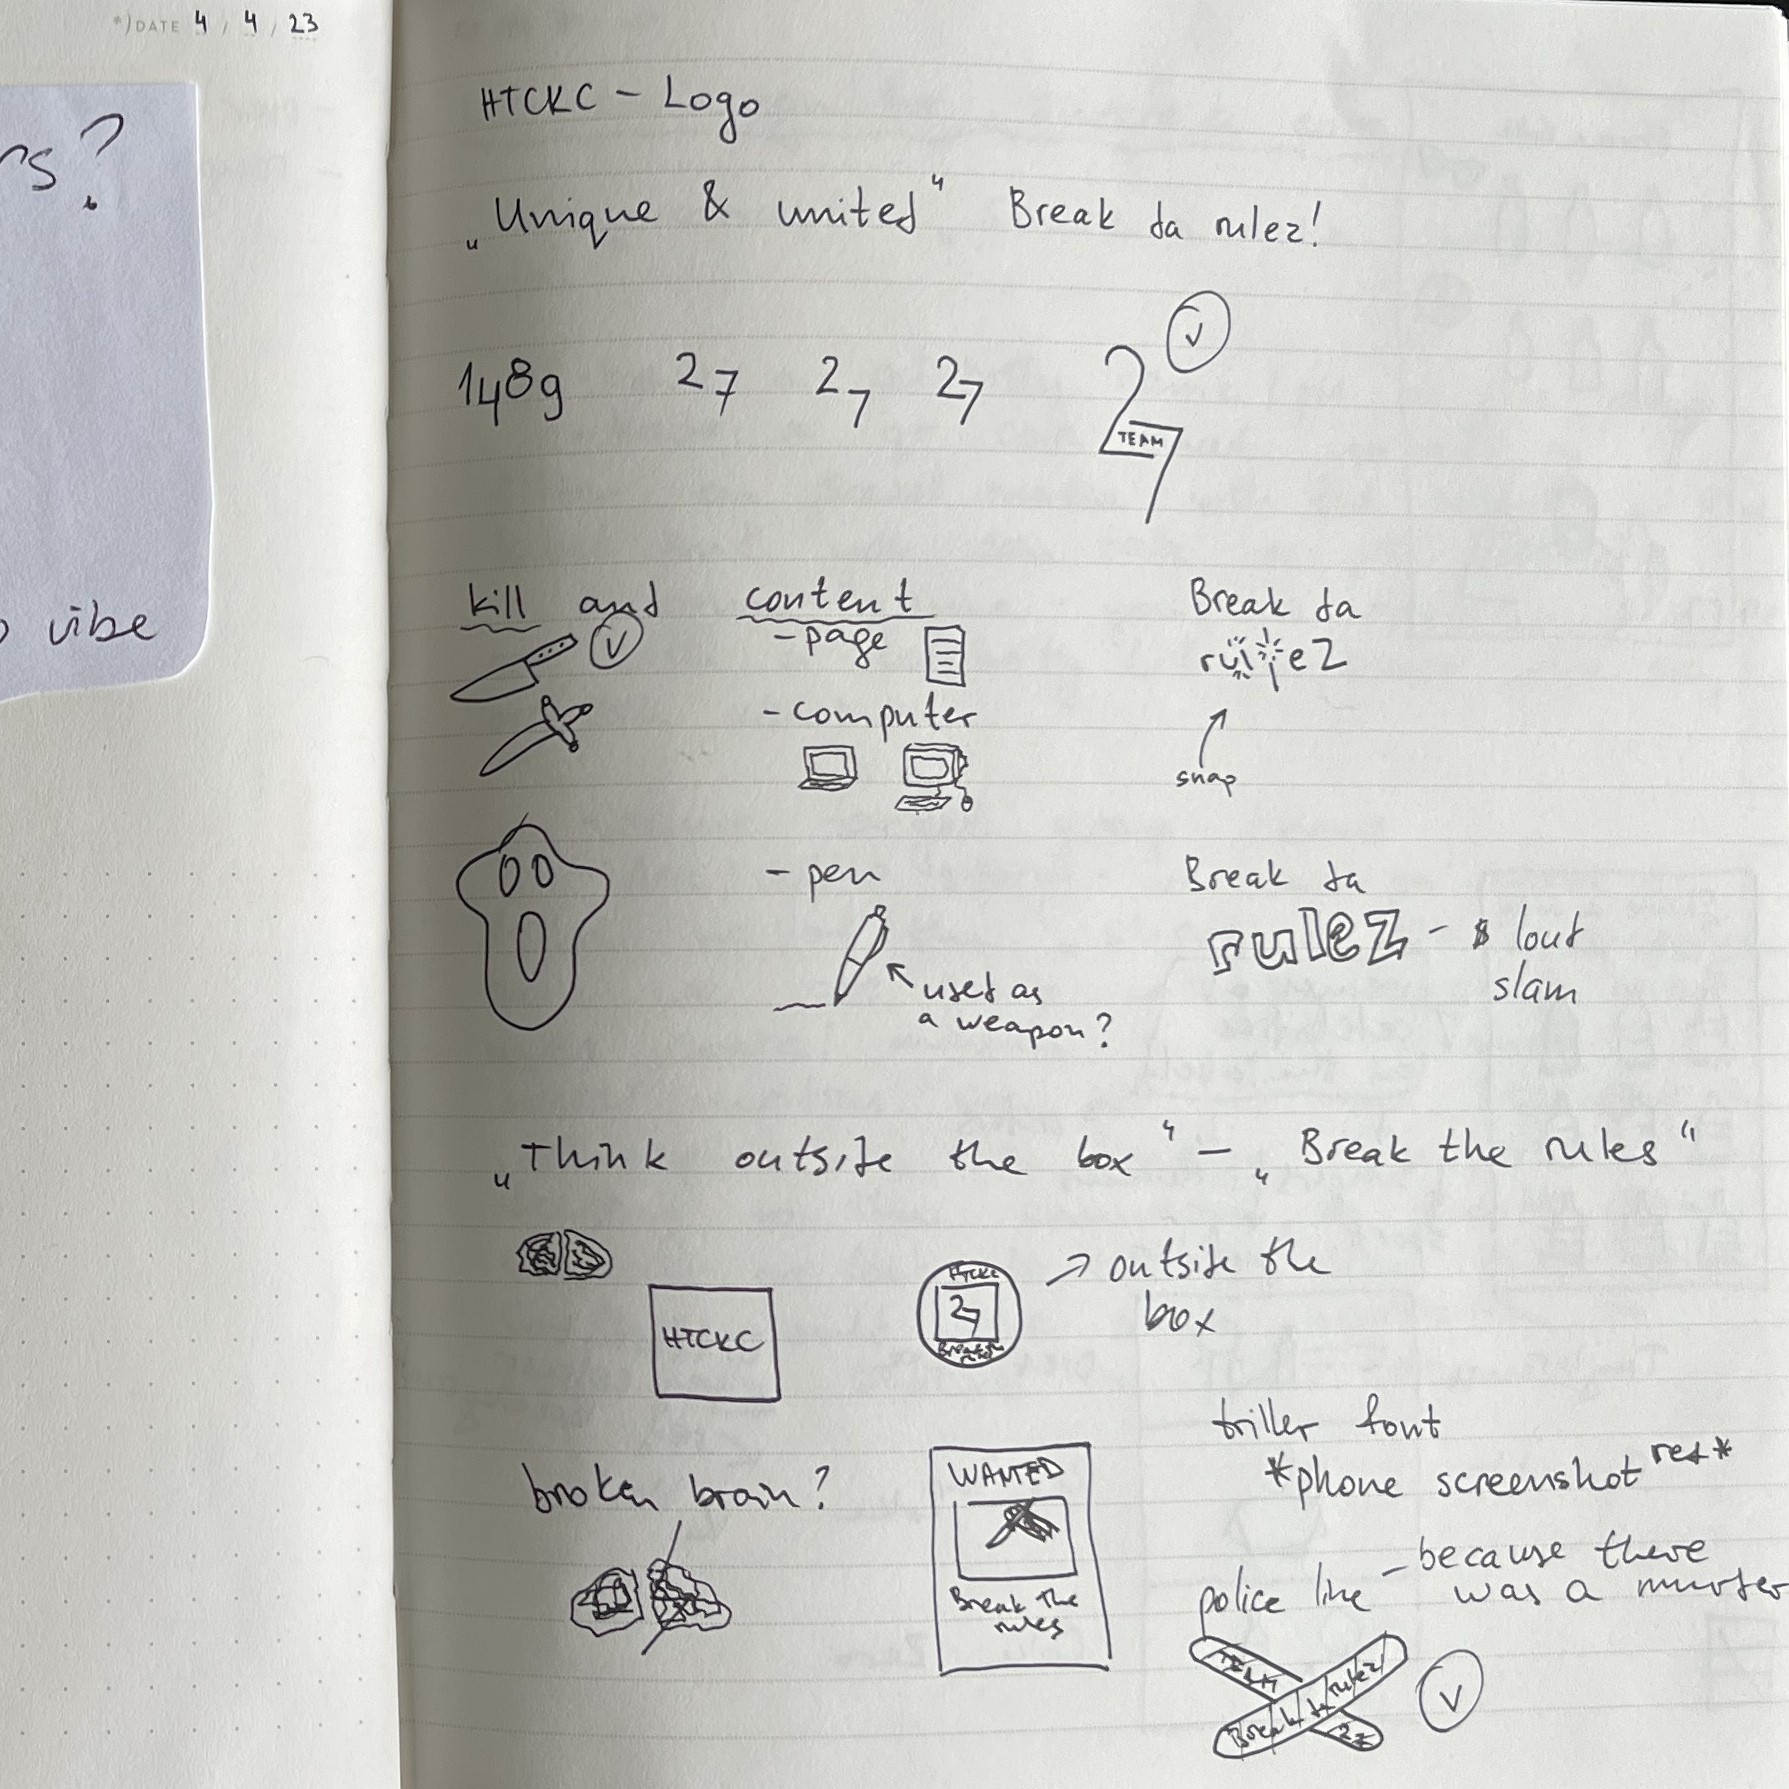 *) DATE 4 / 4 / 23
rs?
vibe
HTCKC - Logo
„Unique & united“ Break da rulez!
148g 27 27 27 27
TEAM
kill and content
- page
- computer
- pen
used as
a weapon?
Break da
rulez
snap
Break da
rulez - lout
slam
„Think outside the box“ - „Break the rules“
HTCKC
HTCKC
27
Break the
rules
→ outside the
box
broken brain?
WANTED
Break the
rules
triller font
*phone screenshot red*
police line - because there
was a murder
TEAM
27
Break da rulez